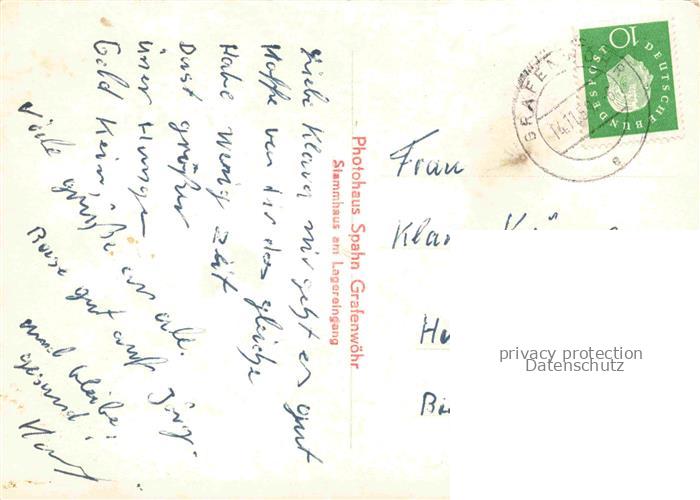 Liebe Klara mir geht es gut
Hoffe von dir das gleiche
Habe wenig Zeit
Dust größer
unser Hunger
Geld Kein,
Viele grüße an alle.
gut auf
und bleibe
gesund!
Photohaus Spahn Grafenwöhr
Stammhaus am Lagereingang
Frau
10
DEUTSCHE BUNDESPOST
GRAFENWÖHR
14.11.
e
privacy protection
Datenschutz